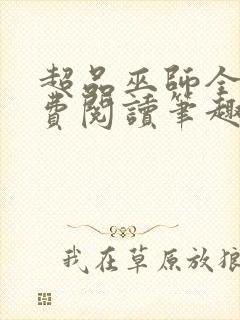 超品巫師全
費閱讀筆趣
我在草原放狼